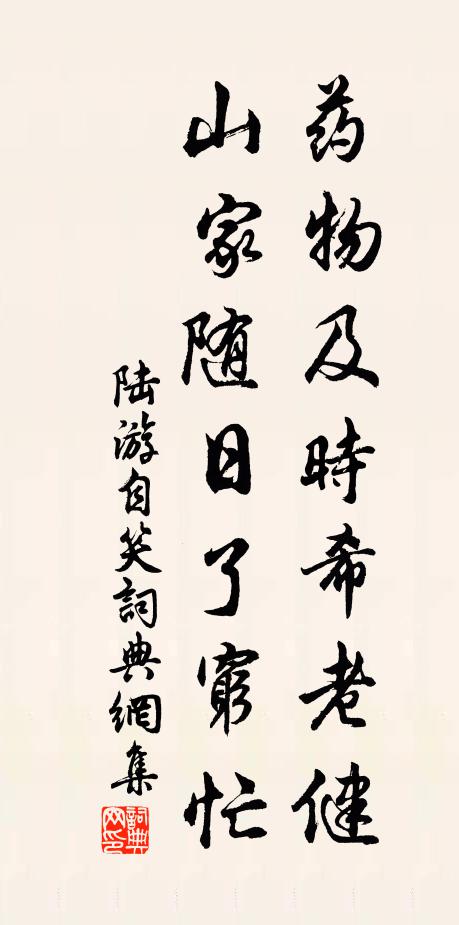 药物及時希老健
山家随日了窮忙
陆游自笑詞典網集
詞典网印